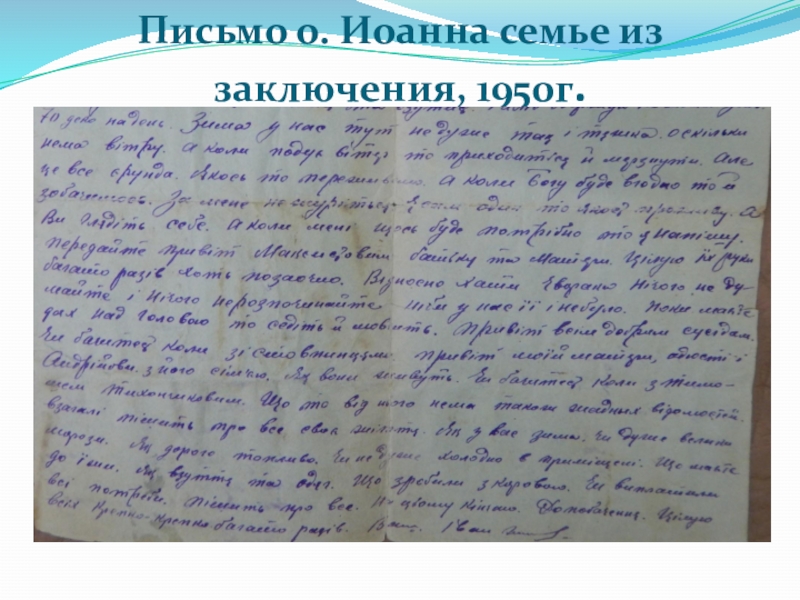 Письмо о. Иоанна семье из
заключения, 1950г.
на день. Зима у нас тут не дуже така і тяжка. оскільки
нема вітру. А коли подує вітер то приходитця й мерзнути. Але
це все єрунда. Якось то переживемо. А коли Богу буде вгодно то й
зобачимось. За мене не журіться я сам один то якось проживу. А
Ви глядіть себе. А коли мені щось буде потрібно то я напишу.
Передайте привіт батьку та Мамузи. Цілую їх руки
багато разів хоть позаочно. Відносно хати Нічого не ду-
майте і нічого нерозпочинайте ніби у нас її і небуло. Поки маєте
дах над головою то седіть й мовчить. Привіт всім добрим сусідам.
Чи бачитесь коли зі привіт моїй мамузи, і
Андрійови. з його сім'єю. Як вони живуть. Чи бачитесь коли з Тимо-
шем Тихончиковим. Що то від його нема таких жадних відомостей.
взагалі пишить про все своє життя. Як у вас зима. Чи дуже великі
морози. Як дорого топливо. Чи не дуже холодно в приміщені. Що маєте
до їжи. Як взуттє та одяг. Що зробили з коровою. Чи виплатили
всі Пишить про все. На цьому кінчаю. Допобачення. Цілую
всіх Крепко-Крепко багато разів. Ваш. Іван